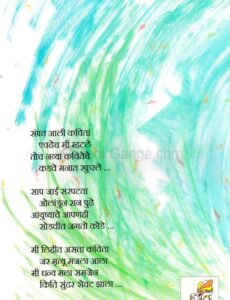 संपत आली कविता
एवढेच मी म्हटले
तोच नव्या कवितेचे
कडवे मनात स्फुरले ...
साप जाई सरपटता
ओलांडून रान पुढे
आयुष्याचे आपणही
सोडवीत जगतो कोडे ...
मी लिहीत असता कविता
जर मृत्यू मजला आला
मी धन्य मला समजेन
किति सुंदर शेवट झाला ...